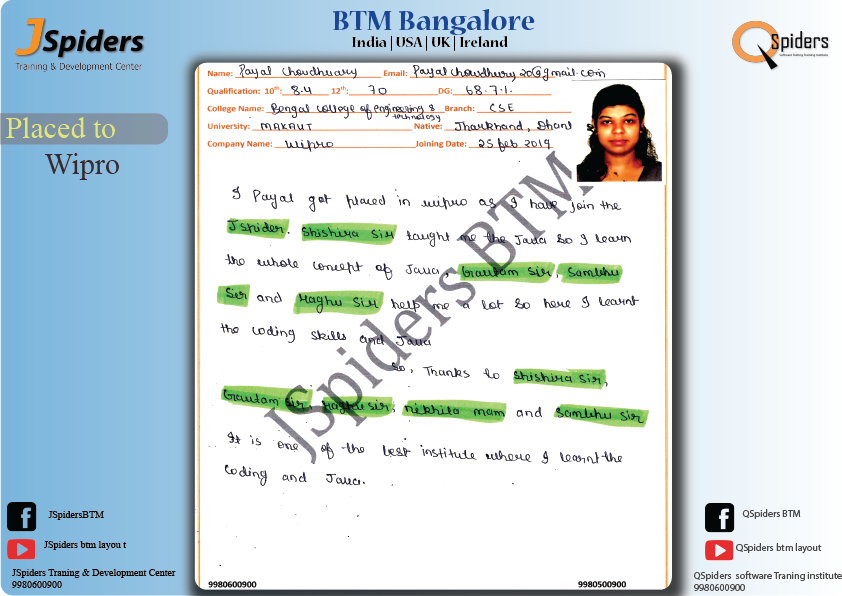 JSpiders
Training & Development Center
BTM Bangalore
India | USA | UK | Ireland
QSpiders
Software Testing Training Institute
Placed to
Wipro
Name: Payal Choudhuary Email: Payalchowdhury20@gmail.com
Qualification: 10th: 8.4 12th: 70 DG: 68.7.1.
College Name: Bengal College of engineering & technology Branch: CSE
University: MAKAUT Native: Jharkhand, Dhanb
Company Name: Wipro Joining Date: 25 feb 2019
I Payal got placed in wipro as I have Join the
Jspider. Shishira Sir taught me the Java so I learn
the whole concept of Java, Grautam Sir, Sambhu
Sir and Raghu Sir help me a lot so here I learnt
the coding skills and Java
So, Thanks to Shishira Sir,
Grautam Sir, Raghu Sir, Nikhita mam and Sambhu Sir
It is one of the best institute where I learnt the
Coding and Java.
JSpiders BTM
9980600900 9980500900
JSpidersBTM
JSpiders btm layou t
JSpiders Traning & Development Center
9980600900
QSpiders BTM
QSpiders btm layout
QSpiders software Traning institute
9980600900